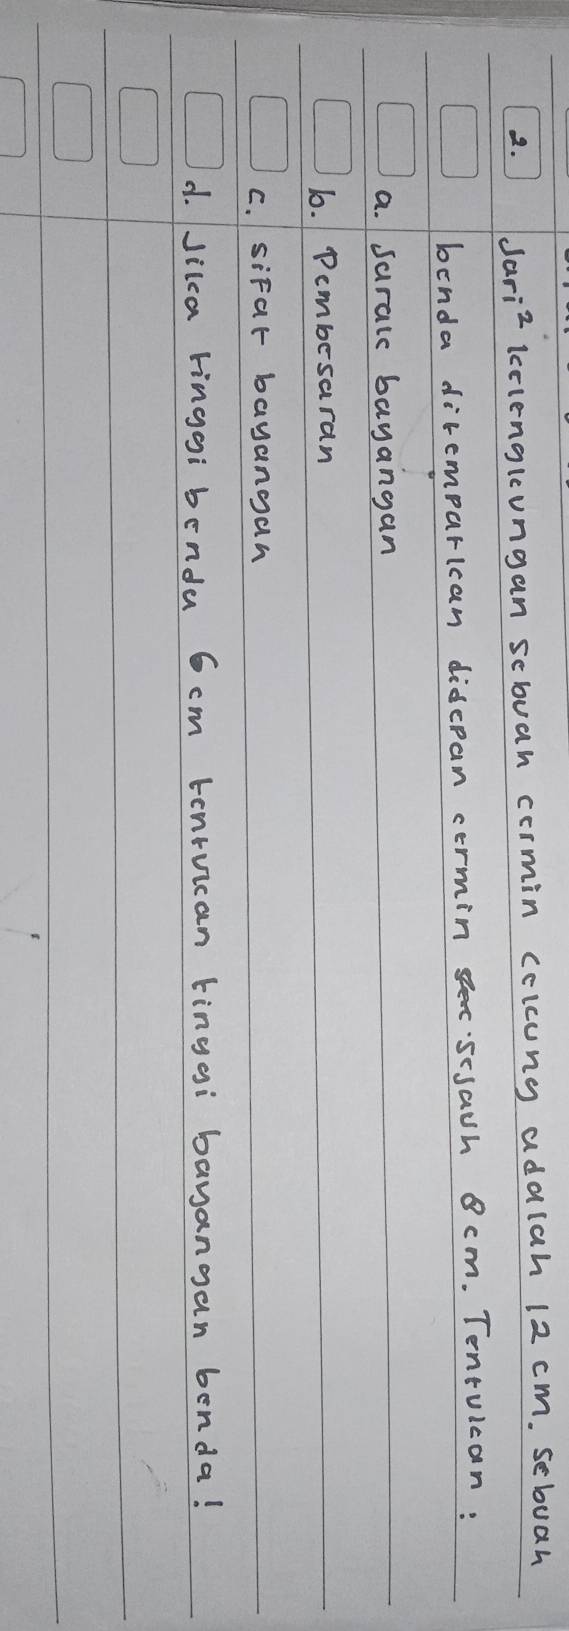 2. Jari² kelengkungan sebuah cermin cekung adalah 12 cm. sebuah
benda ditempatkan didepan cermin sejauh 8 cm. Tentukan :
a. Jarak bayangan
b. Pembesaran
c. sifat bayangan
d. Jika tinggi benda 6 cm tentukan tinggi bayangan benda!